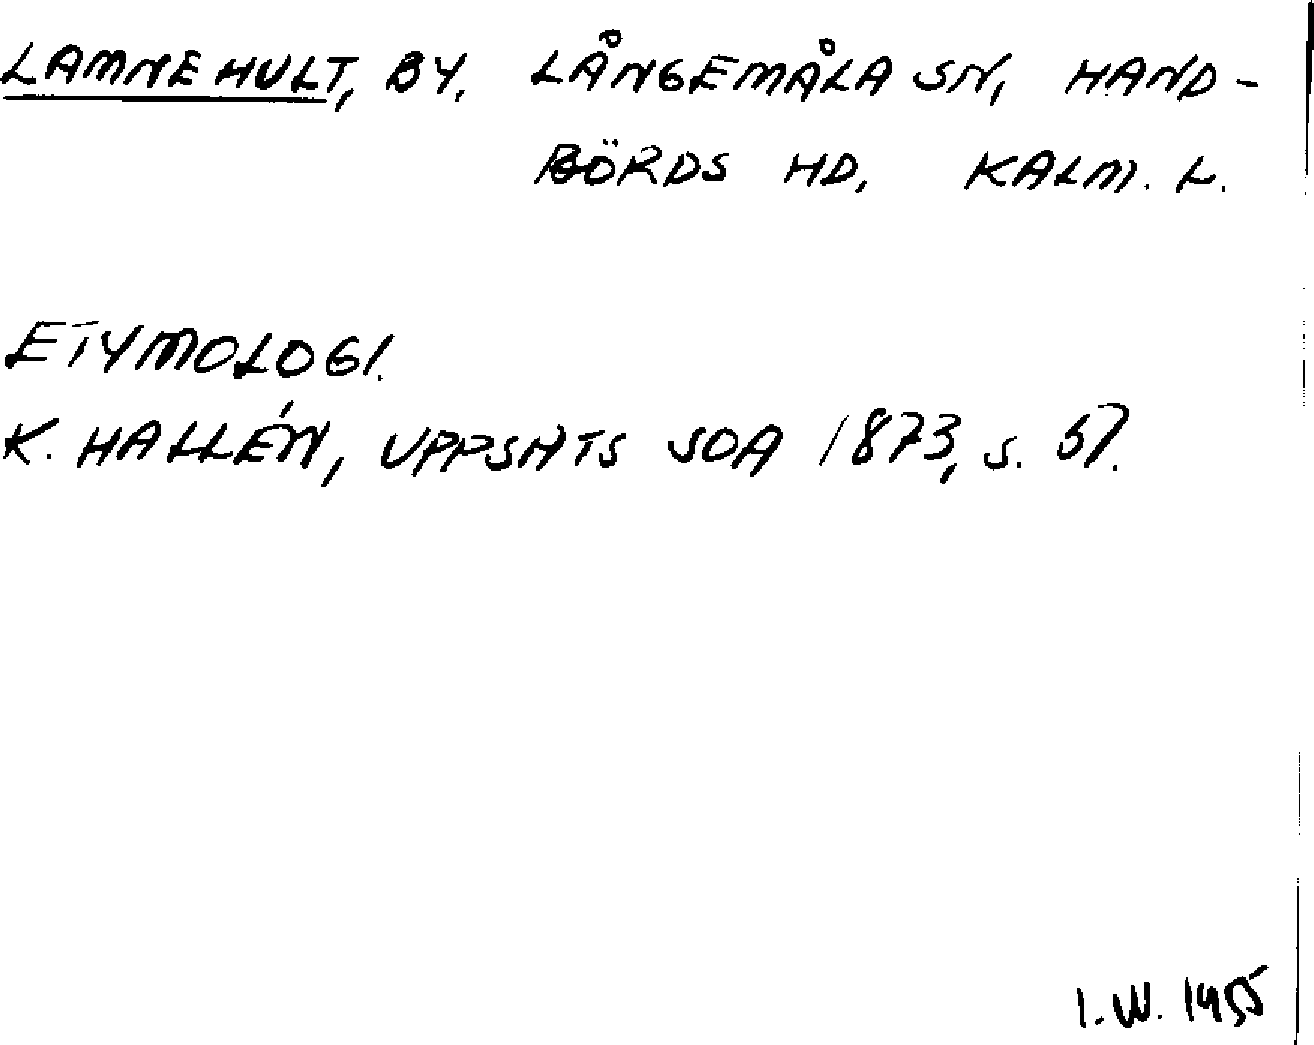 LAMNEHULT, BY. LÅNGEMÅLA SN, HAND-
BÖRDS HD, KALM. L.
ETYMOLOGI.
K. HALLÉN, UPPSATS SOA 1873, S. 57.
I.W. 1955